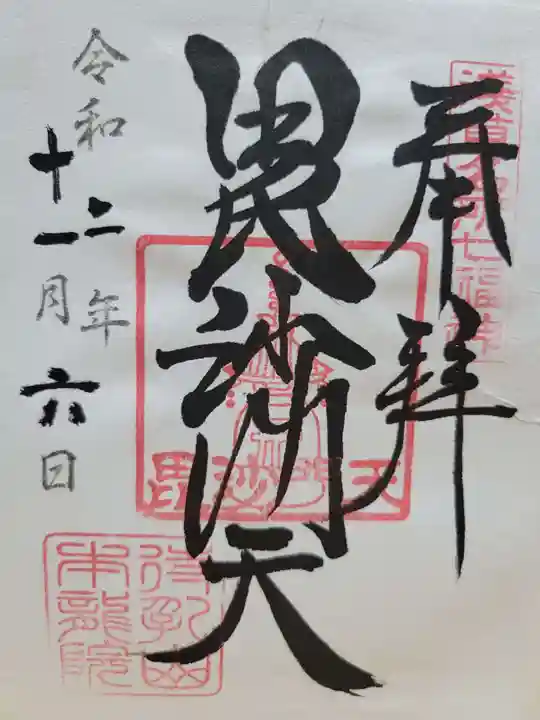 浅草名所七福神
奉拝
毘沙門天
毘沙門天
令和二年
十一月六日
待乳山
本龍院